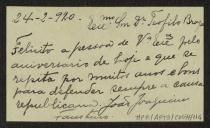 24-2-920.
Exmº Sr. Dr. Teofilo Braga
Felicito a pessoa de V.ª Ex.ª pelo
aniversario de hoje e que se
repita por muitos anos e bons
para defender sempre a causa
republicana João Joaquim
Faustino.